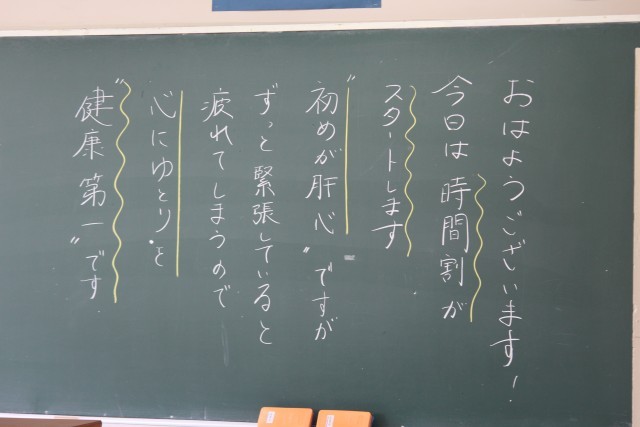 おはようございます!
今日は時間割が
スタートします
"初めが肝心"ですが
ずっと緊張していると
疲れてしまうので
心にゆとりを
"健康第一"です